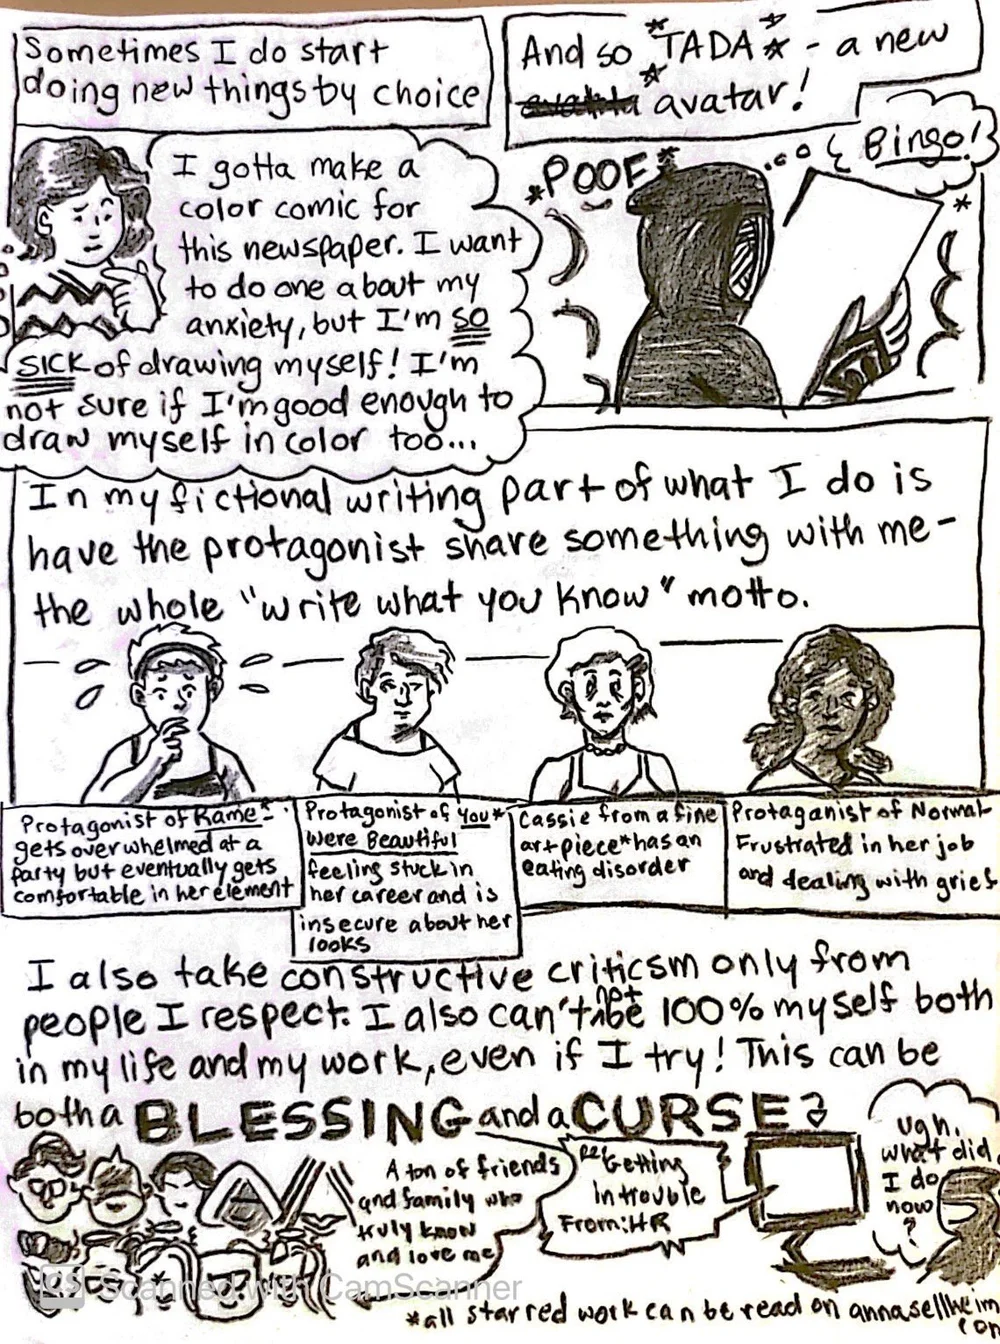 Sometimes I do start
doing new things by choice
I gotta make a
color comic for
this newspaper. I want
to do one about my
anxiety, but I'm so
SICK of drawing myself! I'm
not sure if I'm good enough to
draw myself in color too...
And so *TADA* - a new
avatar!
Bingo!
*POOF*
In my fictional writing part of what I do is
have the protagonist share something with me-
the whole "write what you know" motto.
Protagonist of Rame*
gets overwhelmed at a
party but eventually gets
comfortable in her element
Protagonist of You*
Were Beautiful
feeling stuck in
her career and is
insecure about her
looks
Cassie from a fine
art piece* has an
eating disorder
Protaganist of Normal
Frustrated in her job
and dealing with grief
I also take constructive criticsm only from
people I respect. I also can't not be 100% myself both
in my life and my work, even if I try! This can be
both a BLESSING and a CURSE?
A ton of friends
and family who
truly know
and love me
Re: Getting
in trouble
From: HR
Ugh.
what did
I do
now
?
Scanned with CamScanner
*all starred work can be read on annasellheim
.com